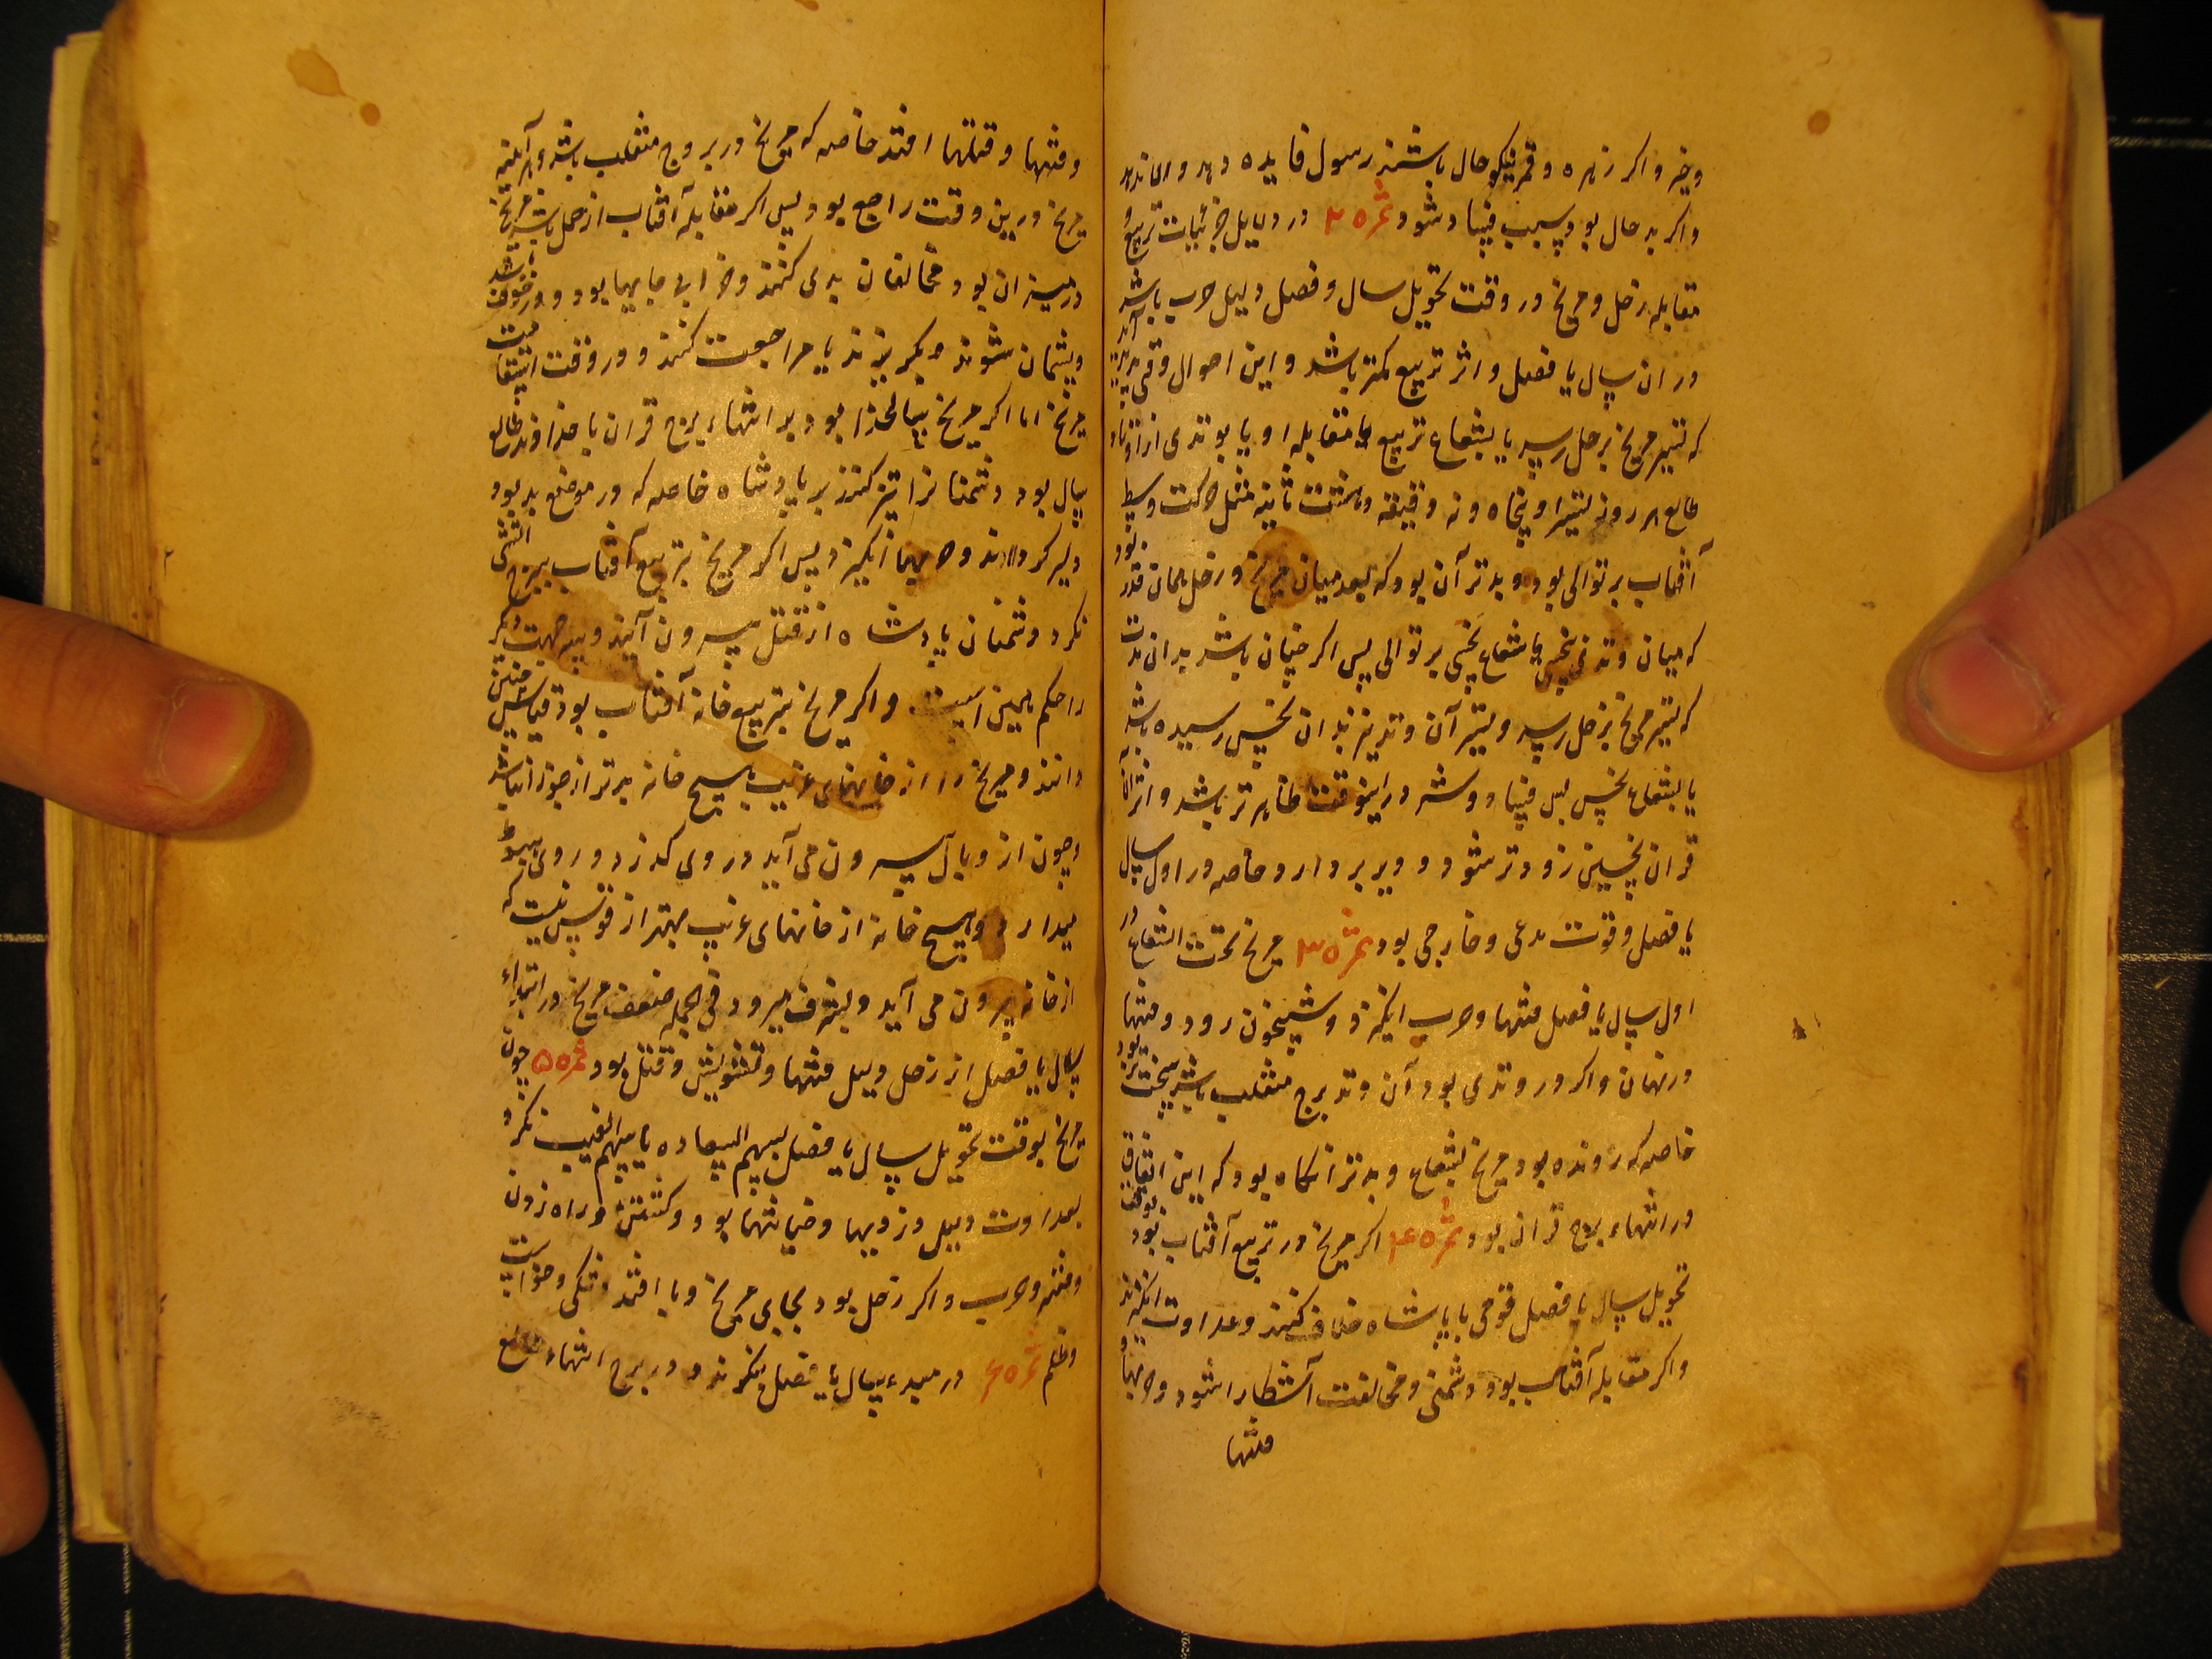 وخیر واکر زهره وقمر نیکو حال باشند رسول فایده دهد
واکر بد حال بود سبب فساد شود ثمره ۲ در دلایل جزئیات تربیع و
مقابله زحل و مریخ در وقت تحویل سال و فصل دلیل حرب باشد
در ان سال یا فصل و اثر تربیع کمتر باشد و این احوال وقتی پدید آید
که تسیر مریخ بزحل رسد یا بشعاع تربیع یا مقابله او یا بوتدی از اوتاد
طالع هر روز تسیر او پنجاه و نه دقیقه و هشت ثانیه مثل حرکت وسط
آفتاب بر توالی بود و بدتر آن بود که بعد میان مریخ و زحل همان قدر بود
که میان وتدی بنحس یا شعاع نحسی بر توالی پس اکر چنان باشد بدان مدت
که تسیر مریخ بزحل رسد و تسیر آن وتد نیز بدان نحس رسیده باشد
یا بشعاع نحس پس فساد و شر درینوقت ظاهرتر باشد و اثر
قران نحسین زودتر شود و دیر بردارد خاصه در اول سال
یا فصل وقوت مدعی و خارجی بود ثمره ۳ مریخ تحت الشعاع در
اول سال یا فصل فتنها و حرب انکیزد و شبیخون رود و فتنها
در نهان واکر در وتدی بود آن وتد برج منقلب باشد سخت تر بود
خاصه که رونده بود مریخ بشعاع و بدتر آنکاه بود که این اتفاق
در انتهاء برج قران بود ثمره ۴ اکر مریخ در تربیع آفتاب بود بوقت
تحویل سال یا فصل قومی با پادشاه خلاف کنند و عداوت انکیزند
واکر مقابله آفتاب بود دشمنی و مخالفت آشکارا شود و حربها و
فتنها
وفتنها و قتلها افتد خاصه که مریخ در بروج منقلب باشد و هر آینه
مریخ درین وقت راجع بود پس اکر مقابله آفتاب از حمل باشد و مریخ
در میزان بود مخالفان بدی کنند و خرابی جایها بود و در خوف باشد
و پشیمان شوند و بکریزند یا مراجعت کنند و در وقت استقامت
مریخ اما اکر مریخ سالخدا بود بر انتهاء برج قران با خداوند طالع
سال بود دشمنانرا تیز کنند بر پادشاه خاصه که در موضع بد بود
دلیر کردانند و حربها انکیزد پس اکر مریخ بتربیع آفتاب ببرج انثی
نکرد دشمنان پادشاه از قتل بیرون آیند و بهر جهت دیکر
را حکم همین است واکر مریخ بتربیع خانه آفتاب بود قیاس چنین
دانند و مریخ را از خانهای غریب هیچ خانه بدتر از جوزا نباشد
وچون از وبال بیرون می آید در وی کذرد و روی بهبوط
میدارد و هیچ خانه از خانهای غریب بهتر از قوس نیست که
از خانه بیرون می آید و بشرف میرود فی الجمله ضعف مریخ در ابتداء
سال یا فصل از زحل دلیل فتنها و تشویش و قتل بود ثمره ۵ چون
مریخ بوقت تحویل سال یا فصل بسهم السعاده یا سهم الغیب نکرد
بعداوت دلیل دزدیها و خیانتها بود و کشتن و راه زدن
وفتنه و حرب واکر زحل بود بجای مریخ وبا افتد و تنکی و
وظلم ثمره ۶ در مبدء سال یا فصل بنکرند و در برج انتهاء طالع